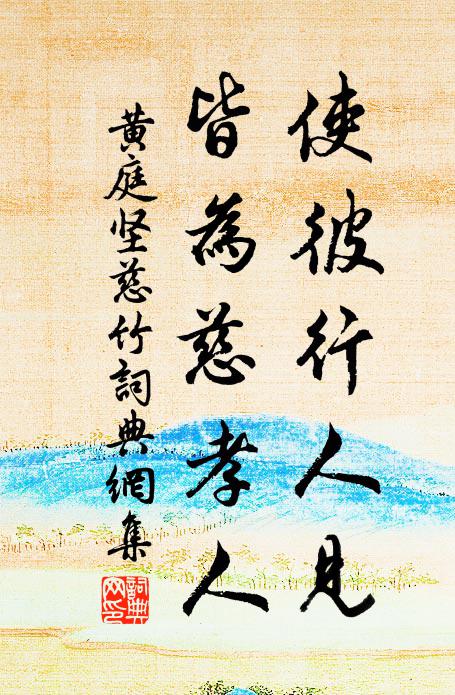 使彼行人見
皆為慈孝人
黄庭坚慈竹詞典網集
詞典網印